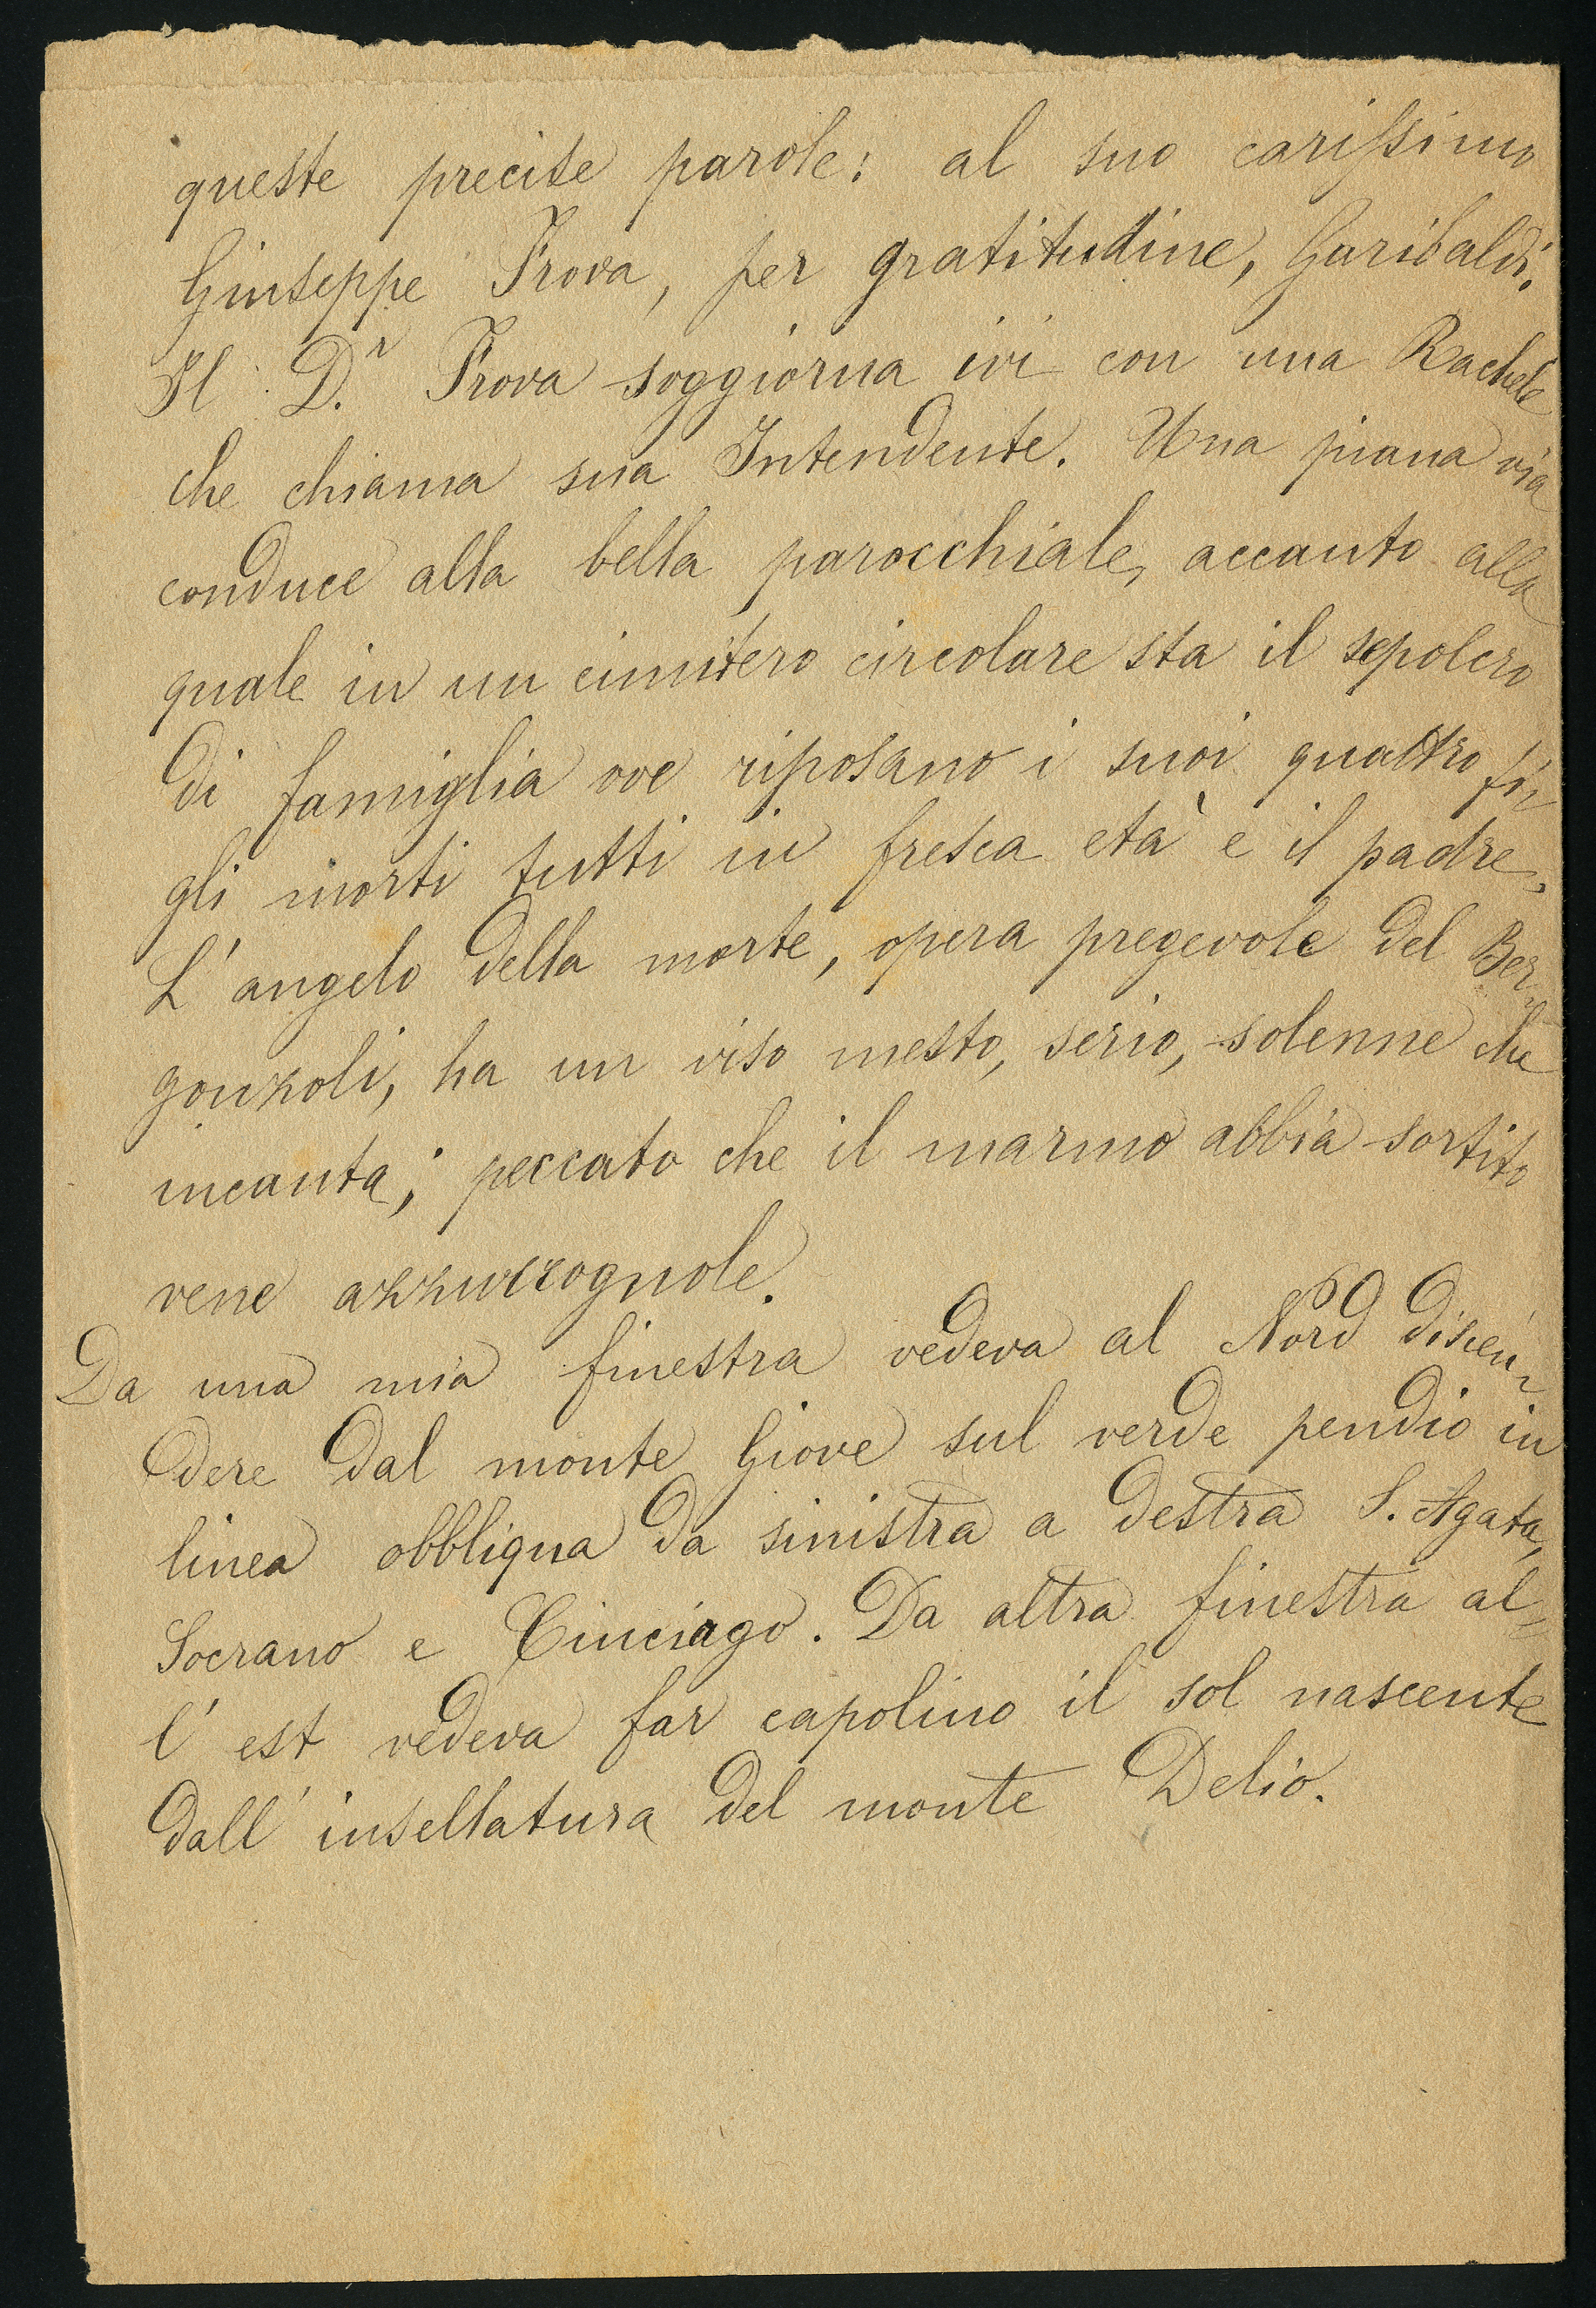 queste precise parole: al suo carissimo
Giuseppe Frova, per gratitudine, Garibaldi.
Il D.r Frova soggiorna ivi con una Rachele
che chiama sua Intendente. Una piana via
conduce alla bella parocchiale, accanto alla
quale in un cimitero circolare sta il sepolcro
di famiglia ove riposano i suoi quattro fi-
gli morti tutti in fresca età e il padre.
L'angelo della morte, opera pregevole del Ber-
gonzoli, ha un viso mesto, serio, solenne che
incanta; peccato che il marmo abbia sortito
vene azzurrognole.
Da una mia finestra vedeva al Nord discen-
dere dal monte Giove sul verde pendio in
linea obbliqua da sinistra a destra S. Agata,
Socrano e Cinciago. Da altra finestra al-
l'est vedeva far capolino il sol nascente
dall'insellatura del monte Delio.